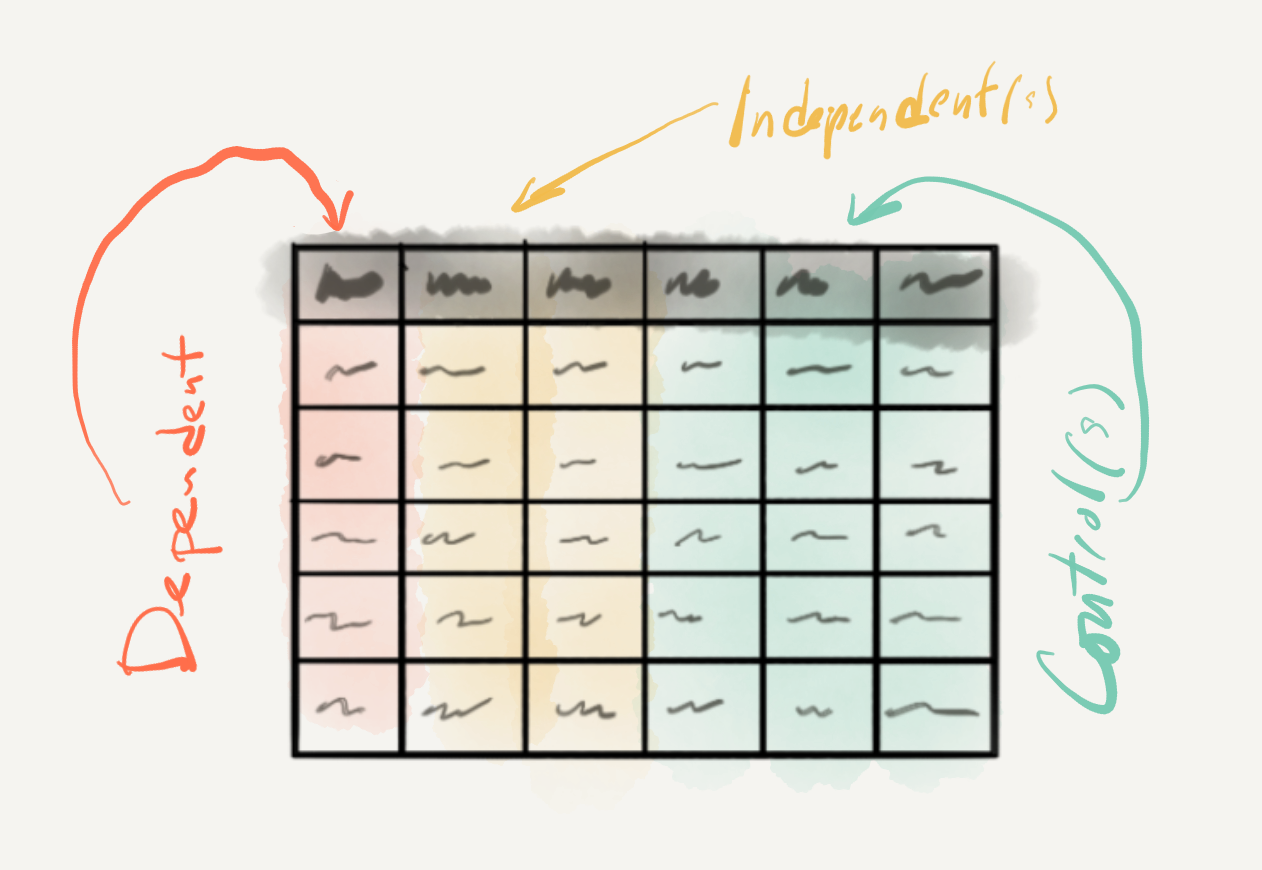 Independent(s)
Dependent
Control(s)